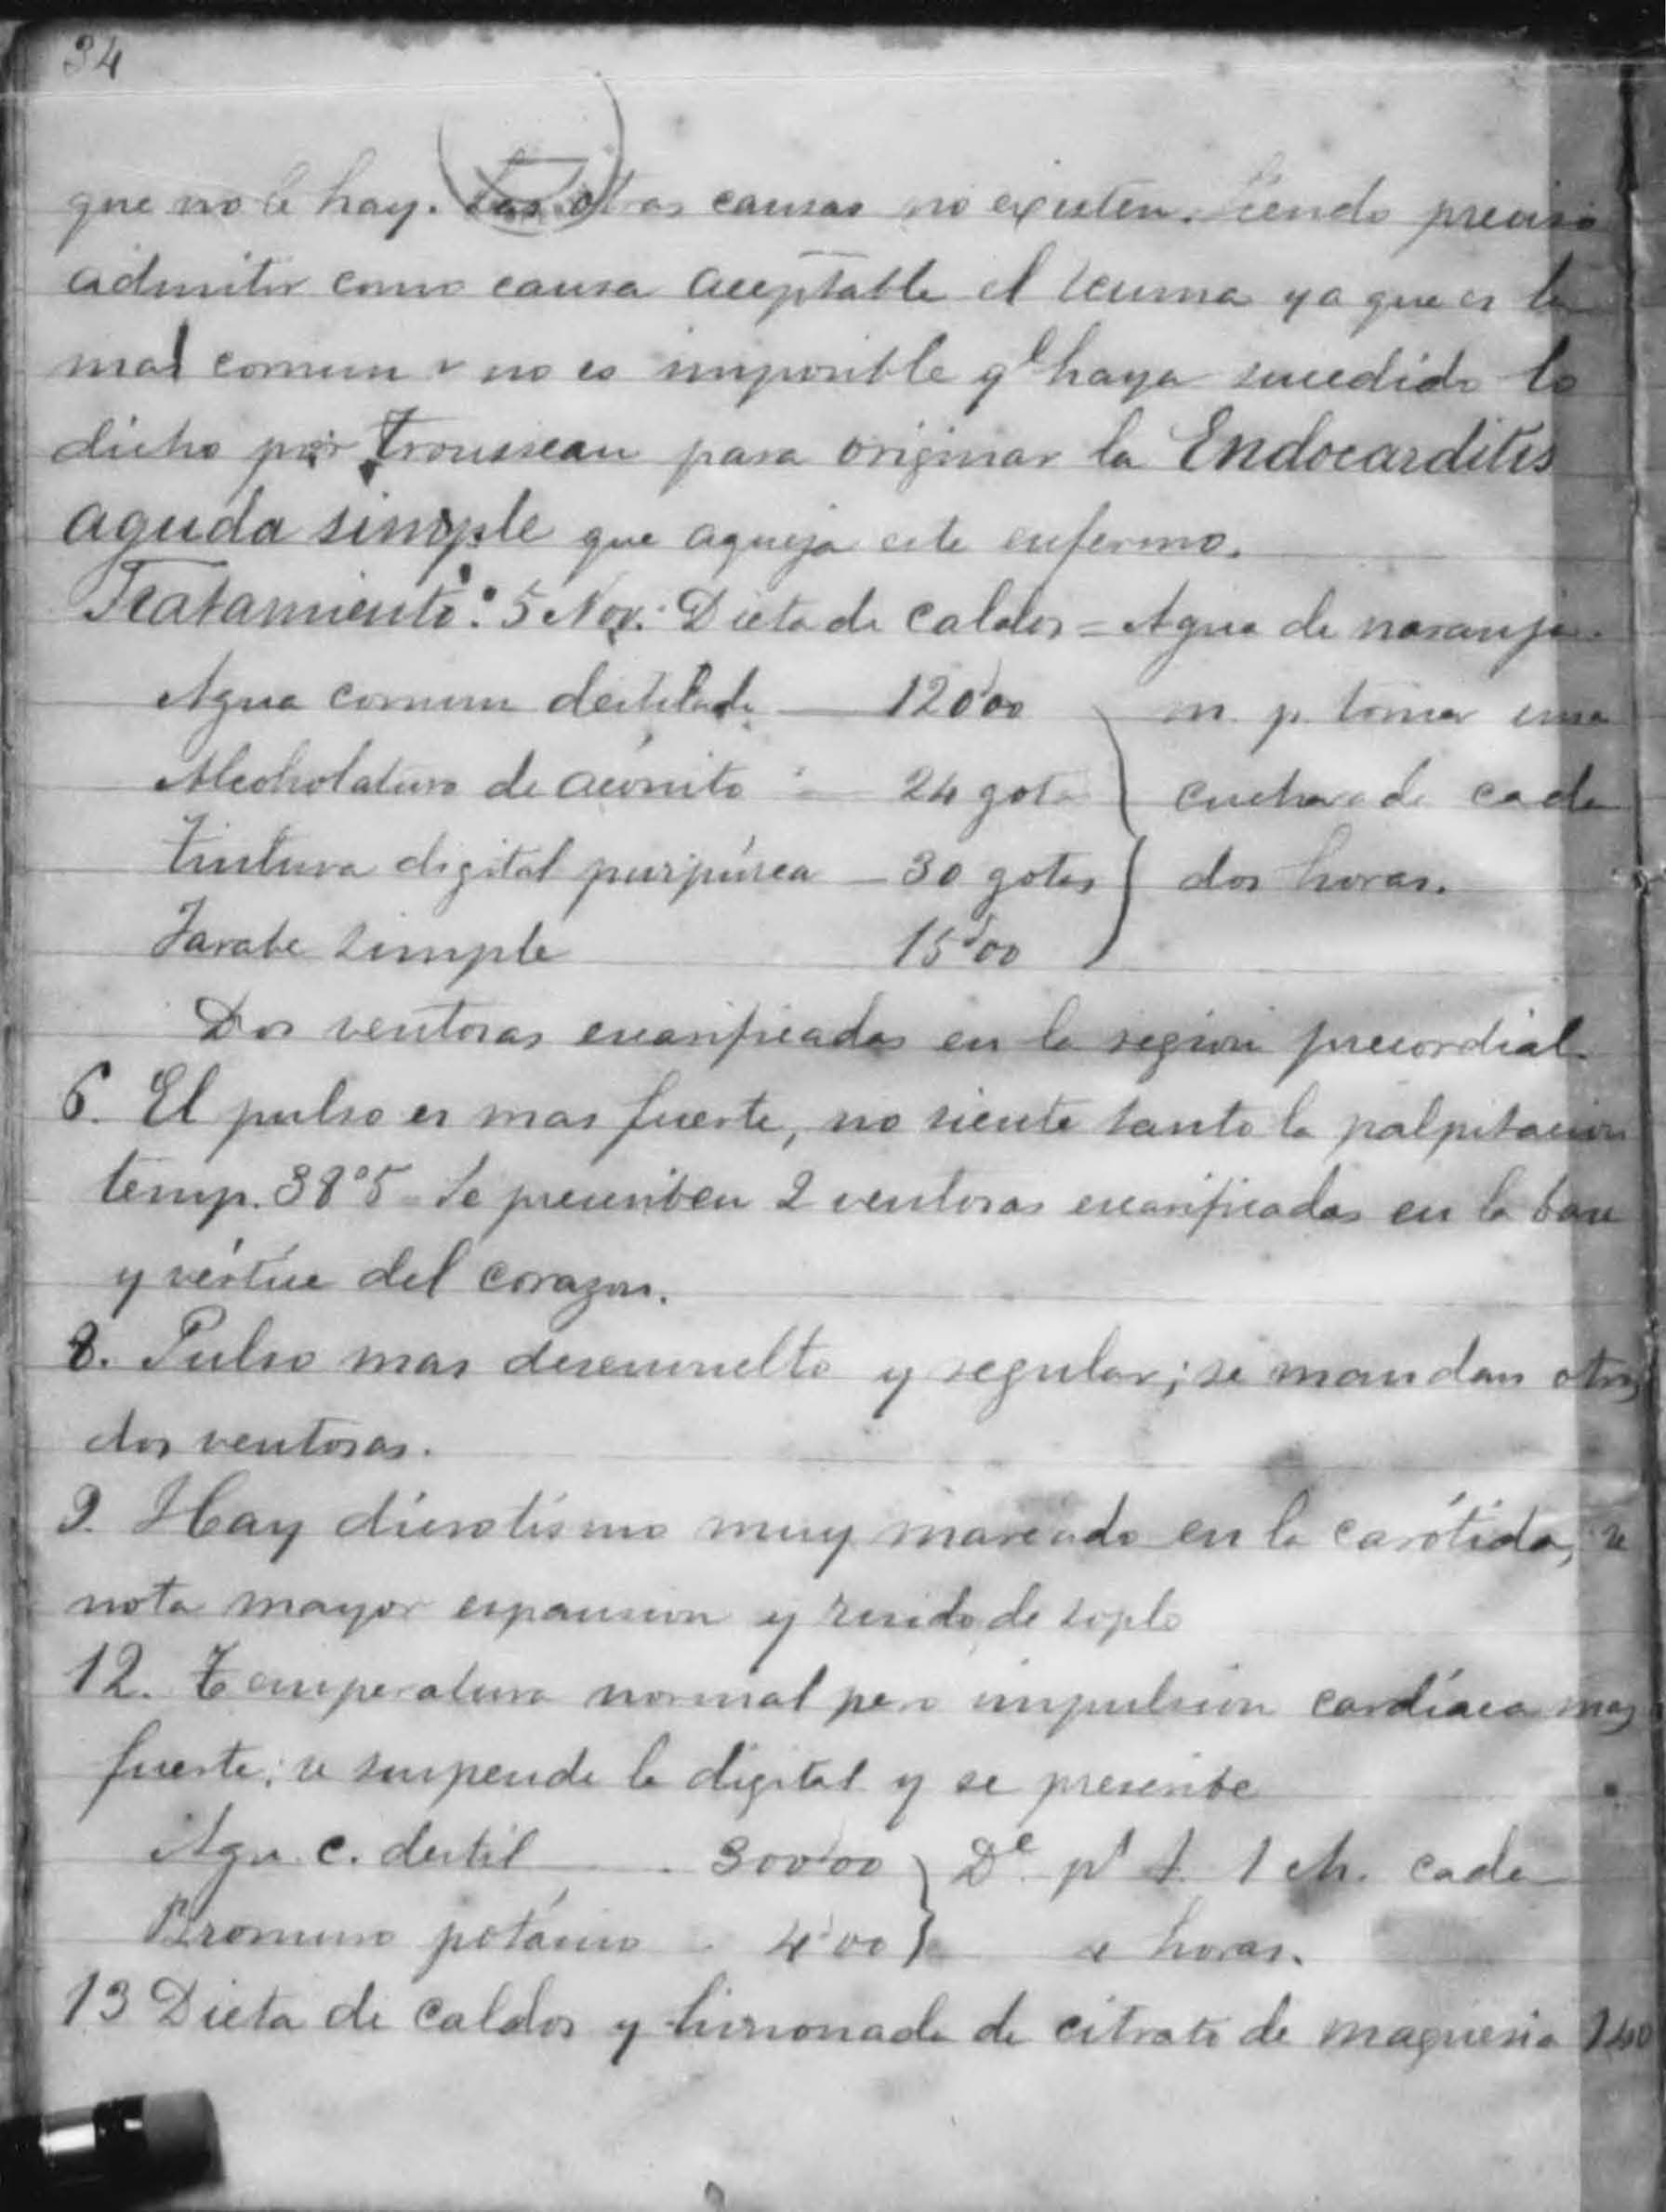 34
que no le hay. Las otras causas no existen. Siendo preciso
admitir como causa aceptable el reuma ya que es la
mas comun y no es imposible qe haya sucedido lo
dicho por Trousseau para originar la Endocarditis
aguda simple que aqueja este enfermo.
Tratamiento: 5 Nov: Dieta de caldos = Agua de naranja.
Agua comun destilada — 120'00 m. p. tomar una
Alcoholaturo de acónito — 24 gotas cucharada cada
Tintura digital purpúrea — 30 gotas dos horas.
Jarabe simple 15'00
Dos ventosas escarificadas en la region precordial.
6. El pulso es mas fuerte, no siente tanto la palpitacion
temp. 38°5 = Se prescriben 2 ventosas escarificadas en la base
y vértice del corazon.
8. Pulso mas desenvuelto y regular; se mandan otras
dos ventosas.
9. Hay dicrotismo muy marcado en la carótida, se
nota mayor espansion y ruido de soplo
12. Temperatura normal pero impulsion cardíaca mas
fuerte; se suspende la digital y se prescribe
Agua c. destil 300'00 De pa t. 1 ch. cada
Bromuro potásico 4'00 horas.
13 Dieta de caldos y limonada de citrato de magnesia